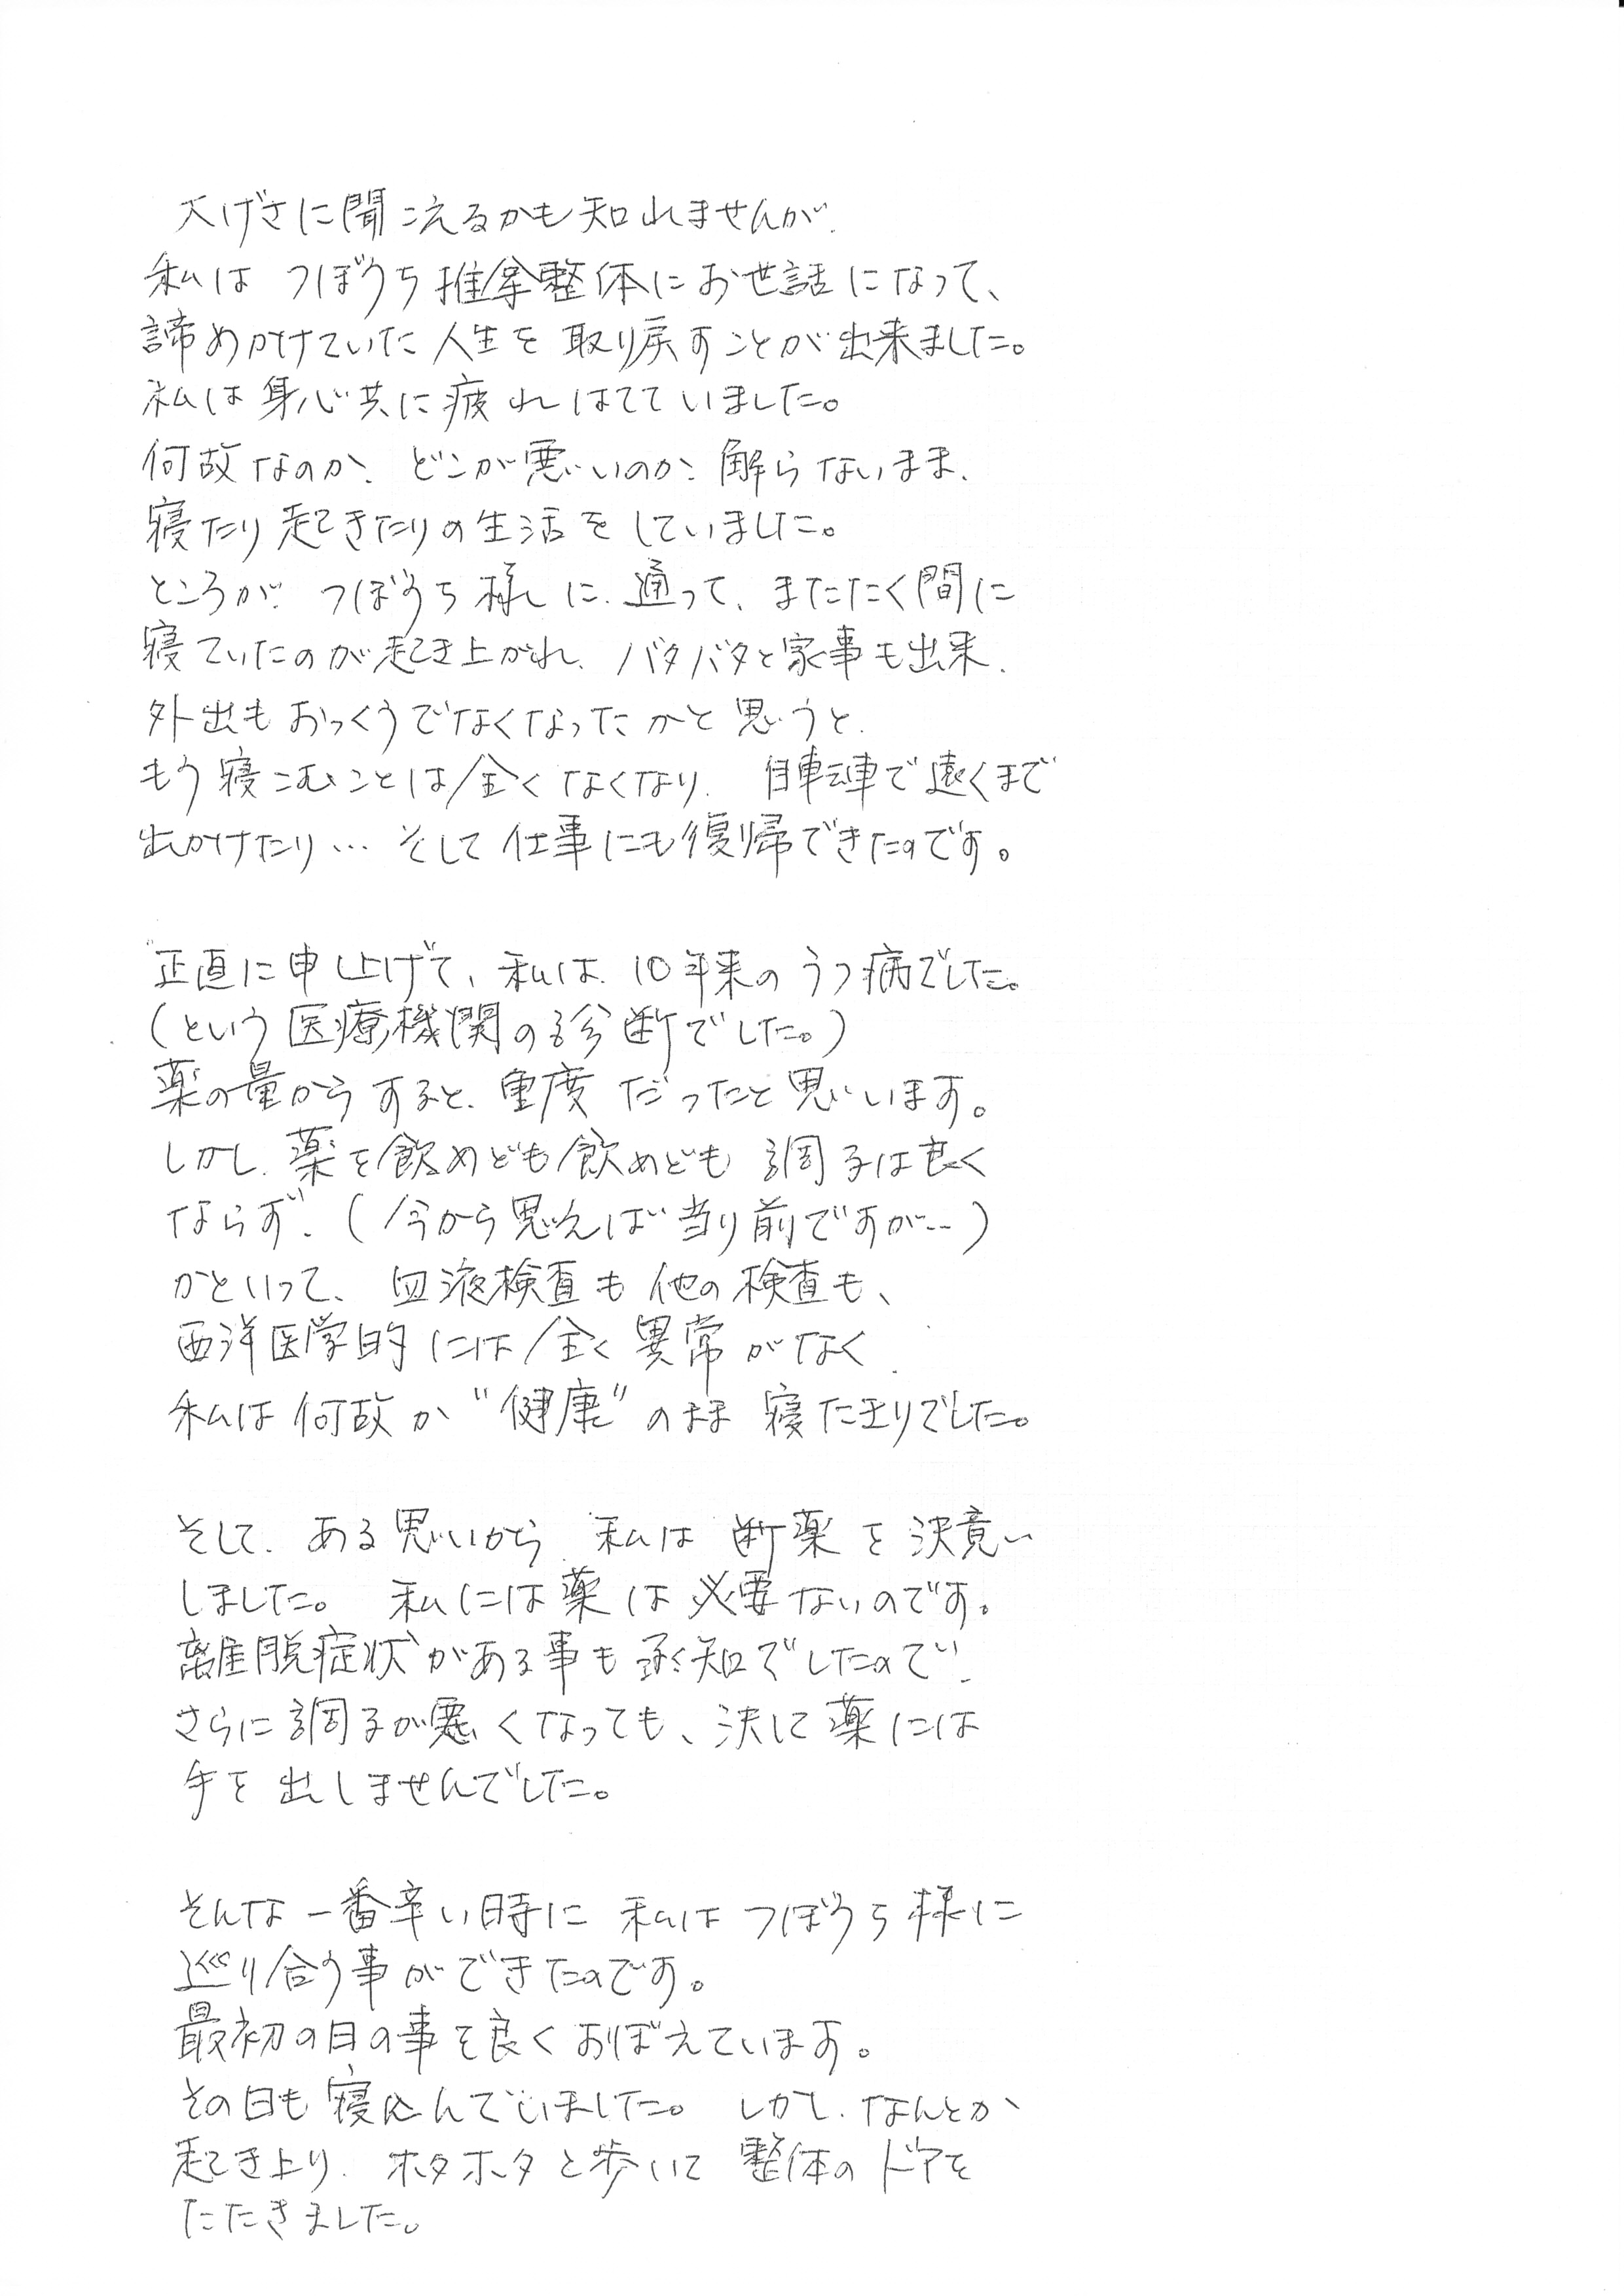 大げさに聞こえるかも知れませんが、
私は つぼうち推拿整体にお世話になって、
諦めかけていた人生を取り戻すことが出来ました。
私は身心共に疲れはてていました。
何故なのか、どこが悪いのか、解らないまま、
寝たり起きたりの生活をしていました。
ところが、つぼうち様に、通って、またたく間に
寝ていたのが起き上がれ、バタバタと家事も出来、
外出もおっくうでなくなったかと思うと、
もう寝こむことは全くなくなり、自転車で遠くまで
出かけたり… そして仕事にも復帰できたのです。
正直に申し上げて、私は、10年来のうつ病でした。
(という医療機関の診断でした。)
薬の量からすると、重度だったと思います。
しかし、薬を飲めども飲めども調子は良く
ならず、(今から思えば当り前ですが…)
かといって、血液検査も他の検査も、
西洋医学的には全く異常がなく、
私は何故か"健康"のまま寝たきりでした。
そして、ある思いから、私は断薬を決意い
しました。 私には薬は必要ないのです。
離脱症状がある事も承知でしたので、
さらに調子が悪くなっても、決して薬には
手を出しませんでした。
そんな一番辛い時に 私はつぼうち様に
巡り合う事ができたのです。
最初の日の事を良くおぼえています。
その日も寝込んでいました。 しかし、なんとか
起き上り、ボタボタと歩いて 整体のドアを
たたきました。